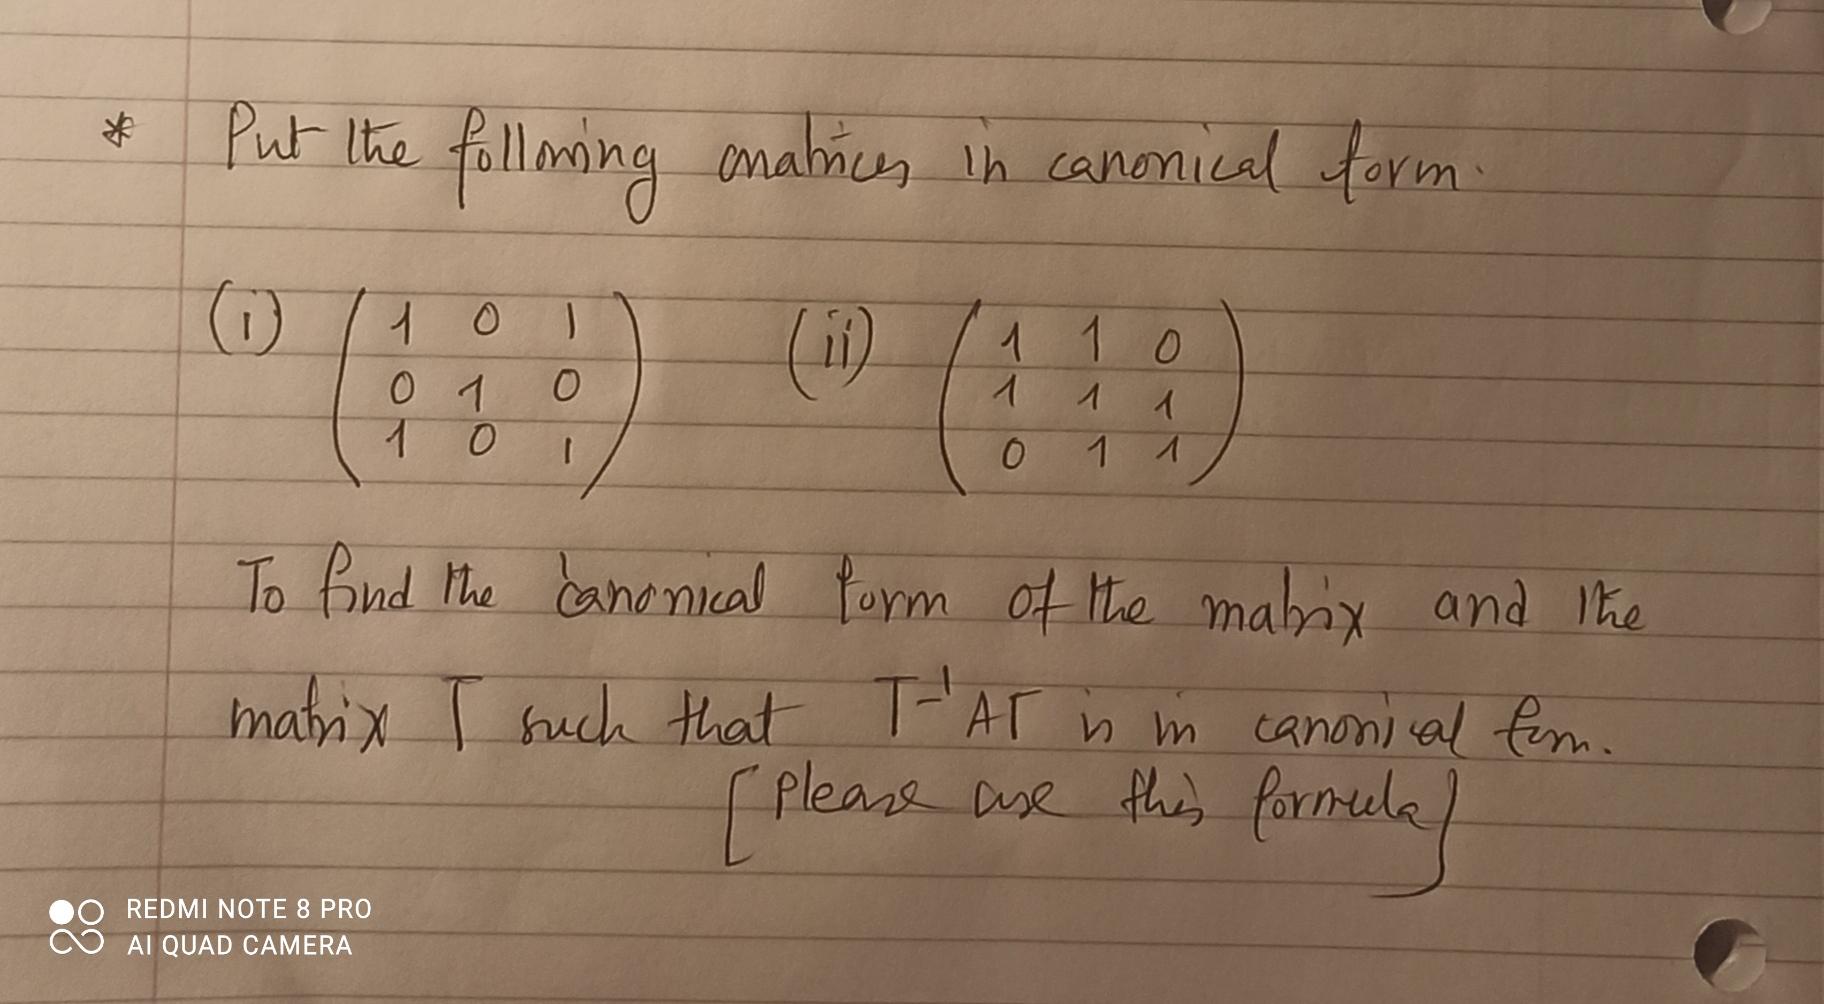 * Put the following matrices in canonical form.
(i) ( 1 0 1 (ii) ( 1 1 0
0 1 0 1 1 1
1 0 1 ) 0 1 1 )
To find the canonical form of the matrix and the
matrix T such that T-1 AT is in canonical form.
[Please use this formula]
REDMI NOTE 8 PRO
AI QUAD CAMERA